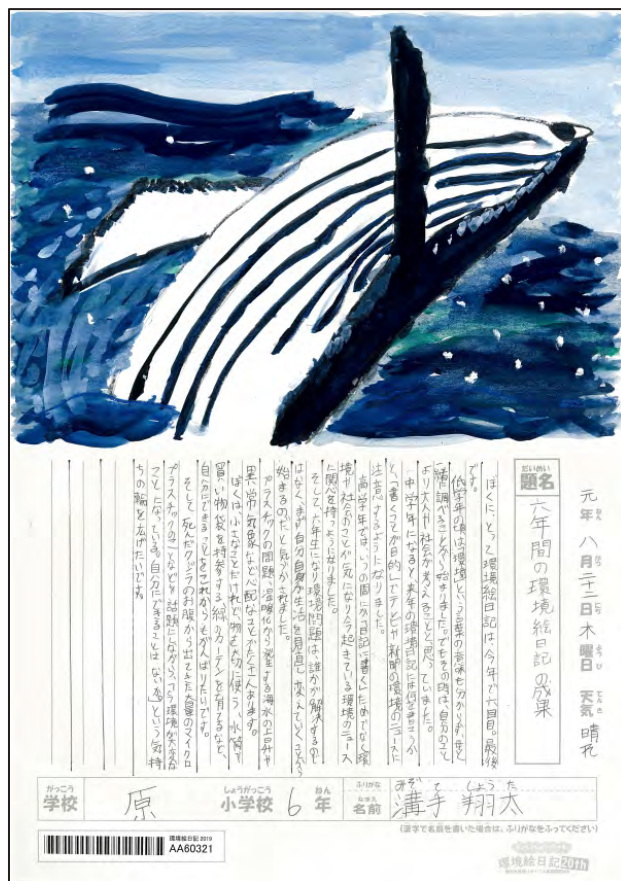 元年 八月二十二日 木曜日 天気 晴れ
ねん がつ にち ようび てんき
だいめい
題名
六年間の環境絵日記の成果
ぼくにとって環境絵日記は、今年で六回目。最後
です。
低学年の頃は「環境」という言葉の意味も分からず、母と
一緒に調べることから始まりました。でもその時は、自分のこと
より大人や社会が考えることと思っていました。
中学年になると来年の環境日記には何を書こうか
と、「書くことが目的」でテレビや新聞の環境のニュースに
注意するようになりました。
高学年では、いつの間にか「日記に書く」ためでなく環
境や社会のことが気になり今起きている環境のニュース
に関心を持つようになりました。
そして、六年生になり環境問題は、誰かが解決するので
はなく、まず自分自身が生活を見直し変えていくことから
始まるのだと気づかされました。
プラスチックの問題、温暖化から発生する海水の上昇や
異常気象など心配なことがたくさんあります。
ぼくは、小さなことだけれど物を大切に使う、水筒や
買い物袋を持参する、緑のカーテンを育てるなど、
自分にできることをこれからもがんばりたいです。
そして、死んだクジラのお腹から出てきた大量のマイクロ
プラスチックのことなどを話題にしながら、「今環境が大変な
ことになっている。自分にできることはないか」という気持
ちの輪を広げたいです。
がっこう しょうがっこう ねん ふりがな みぞて しょうた
学校 原 小学校 6年 なまえ 名前 溝手 翔太
(漢字で名前を書いた場合は、ふりがなをふってください)
環境絵日記 2019
AA60321
環境絵日記 20th